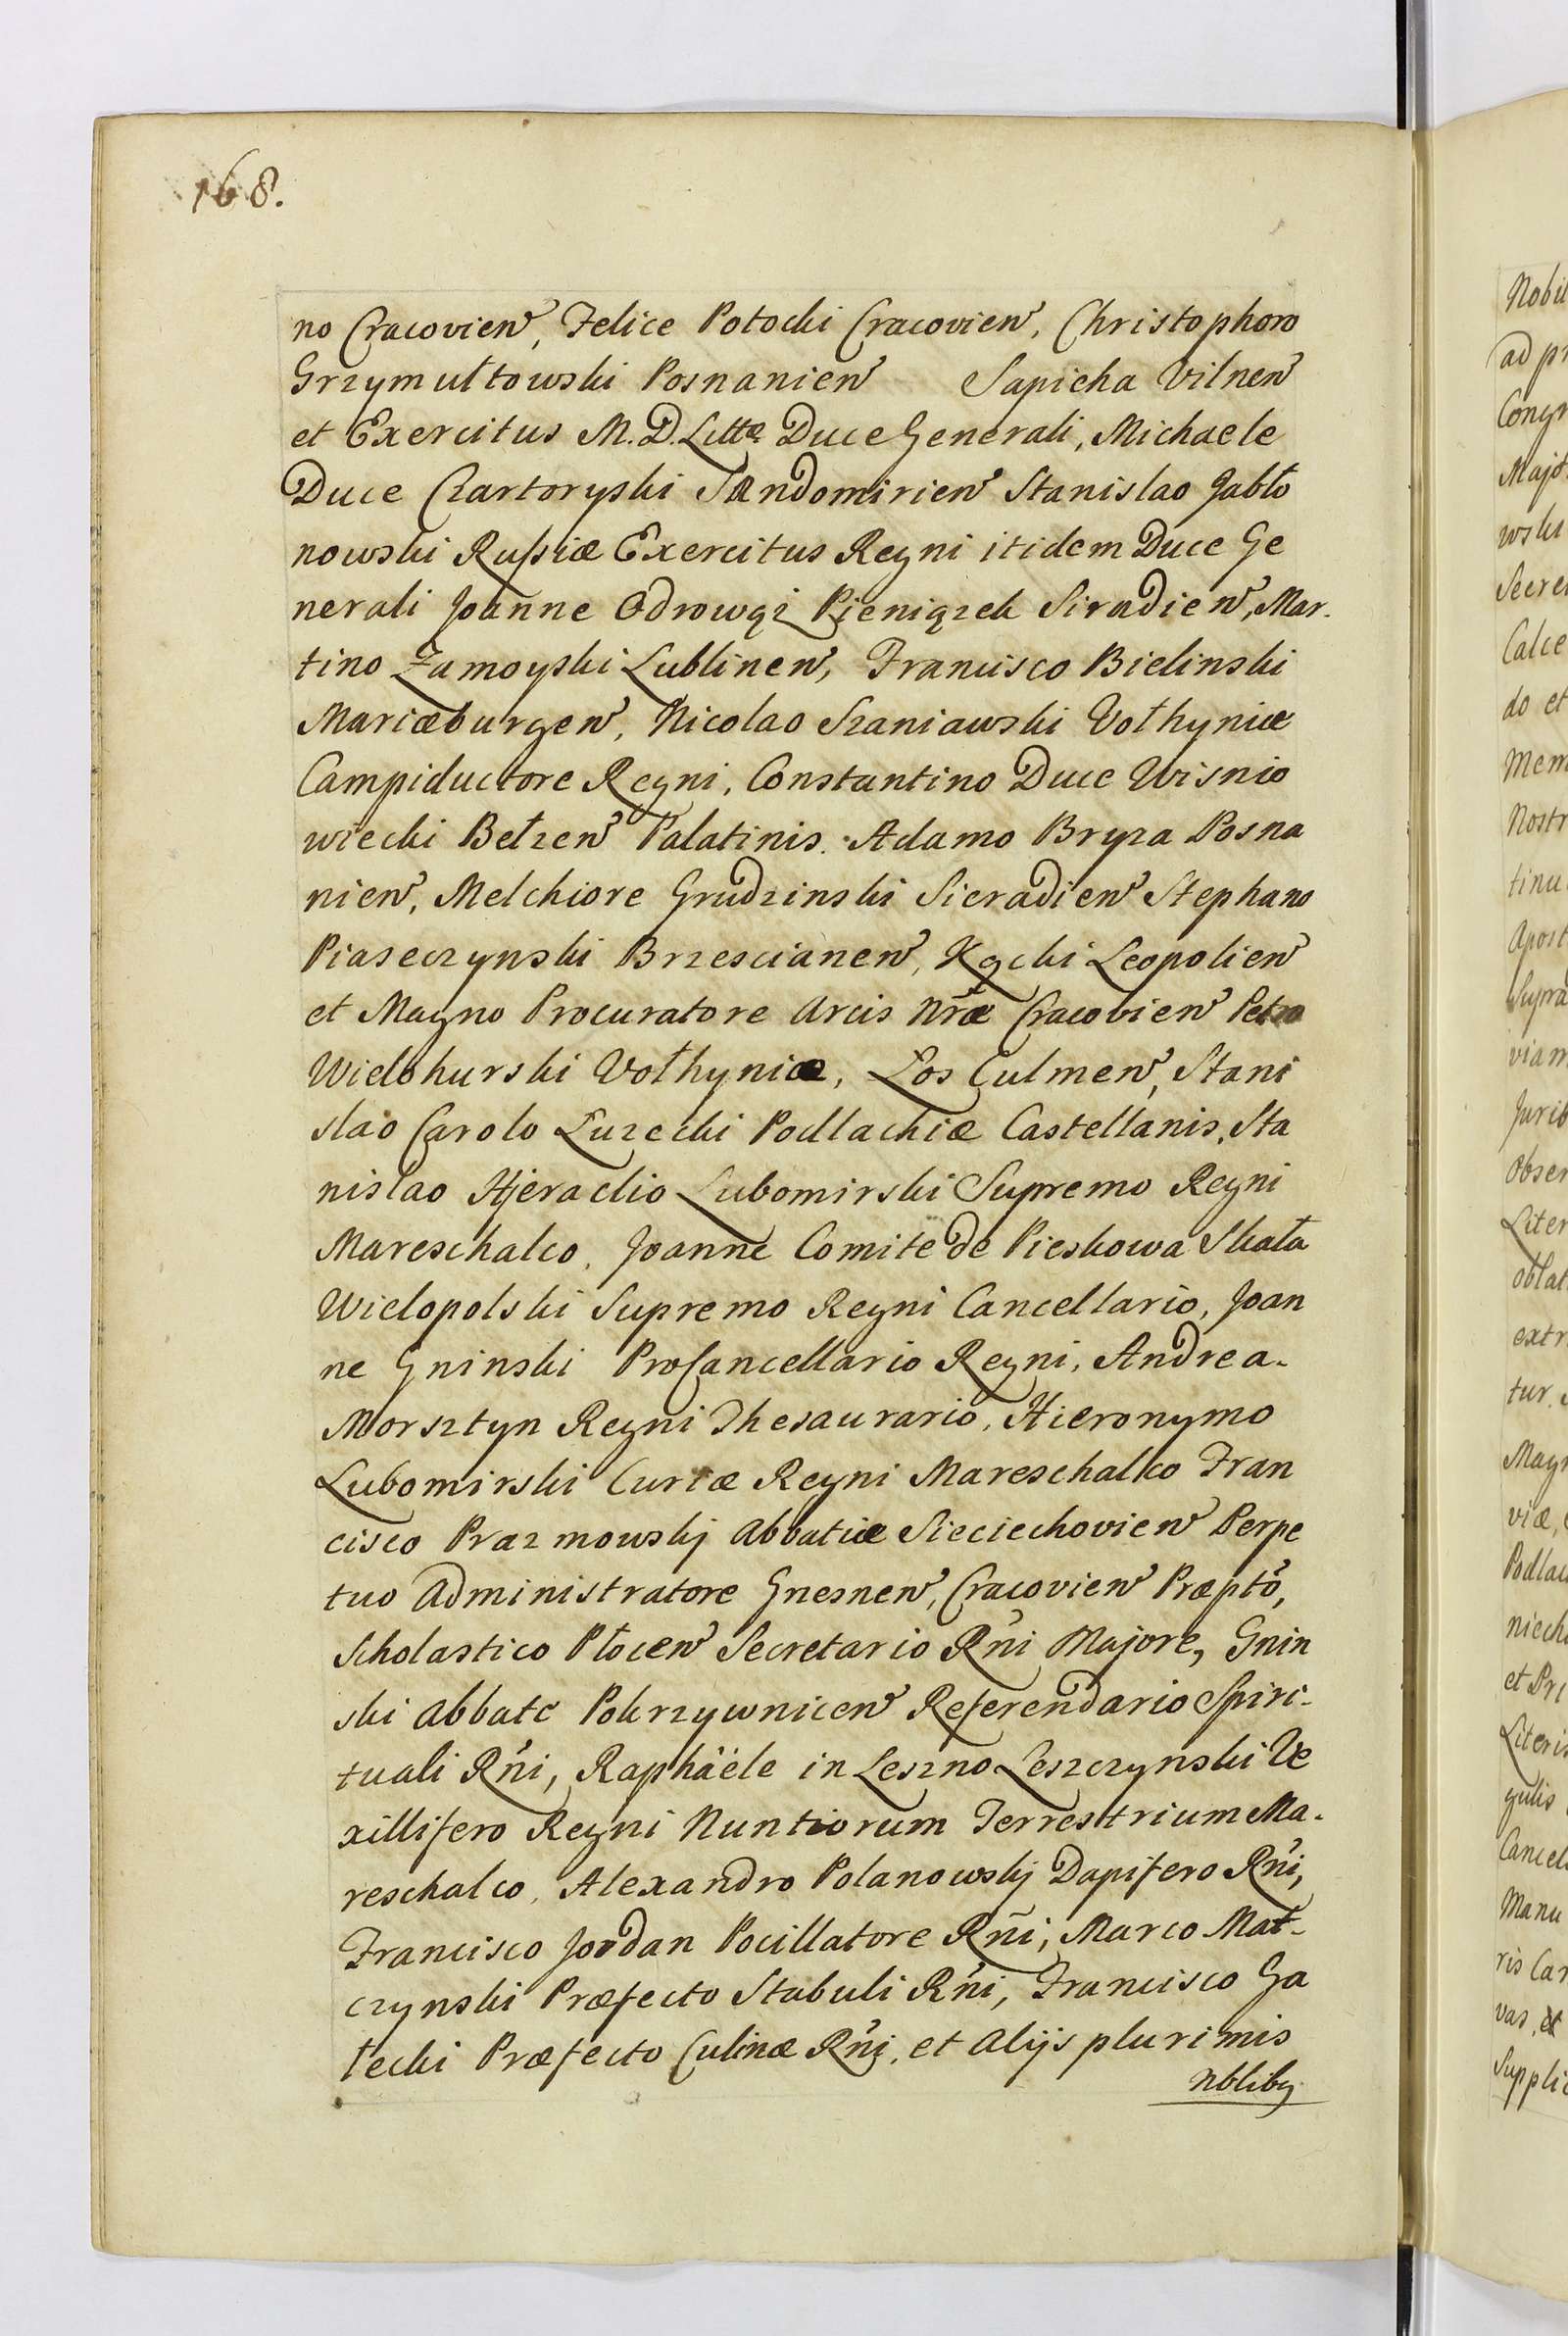 168.
no Cracovien, Felice Potocki Cracovien, Christophoro
Grzymułtowski Posnanien Sapieha Vilnen
et Exercitus M. D. Litt̃æ Duce Generali, Michaele
Duce Czartoryski Sandomirien Stanislao Jabło
nowski Russiæ Exercitus Regni itidem Duce Ge
nerali Joanne Odrowąż Pieniązek Siradien, Mar-
tino Zamoyski Lublinen, Francisco Bielinski
Mariæburgen, Nicolao Szaniawski Vołhyniæ
Campiductore Regni, Constantino Duce Wisnio
wiecki Bełzen Palatinis. Adamo Bryza Posna
nien, Melchiore Grudzinski Sieradien Stephano
Piaseczynski Brzescianen, Kącki Leopolien
et Magno Procuratore Arcis Nr̃æ Cracovien Petro
Wielohurski Vołhyniæ, Łos Culmen, Stani
slao Carolo Łuzecki Podlachiæ Castellanis, Sta
nislao Hjeraclio Lubomirski Supremo Regni
Mareschalco, Joanne Comite de Pieskowa Skała
Wielopolski Supremo Regni Cancellario, Joan
ne Gninski ProCancellario Regni, Andrea-
Morsztyn Regni Thesaurario, Hieronymo
Lubomirski Curiæ Regni Mareschalco Fran
cisco Prazmowskj Abbatiæ Sieciechovien Perpe
tuo Administratore Gnesnen, Cracovien Præpto,
Scholastico Płocen Secretario Rñi Majore, Gnin
ski Abbate Pokrzywnicen Referendario Spiri-
tuali Rñi, Raphäele in Leszno Leszczynski Ve
xillifero Regni Nuntiorum Terrestrium Ma-
reschalco, Alexandro Polanowskj Dapifero Rñi,
Francisco Jordan Pocillatore Rñi, Marco Mat-
czynski Præfecto Stabuli Rñi, Francisco Ga
łecki Præfecto Culinæ Rñi, et Alijs plurimis
Nbliby
Nobil
ad pr
Congr
Majõ
wski
Secre
Calce
do et
Mem
Nostr
tinu
Apost
Supra
viam
Jurib
Obser
Liter
oblat
extr
tur.
Magn
viæ,
Podlac
niech
et Pri
Literis
gulis
Cancel
Manu
ris Can
vas, et
Supplic